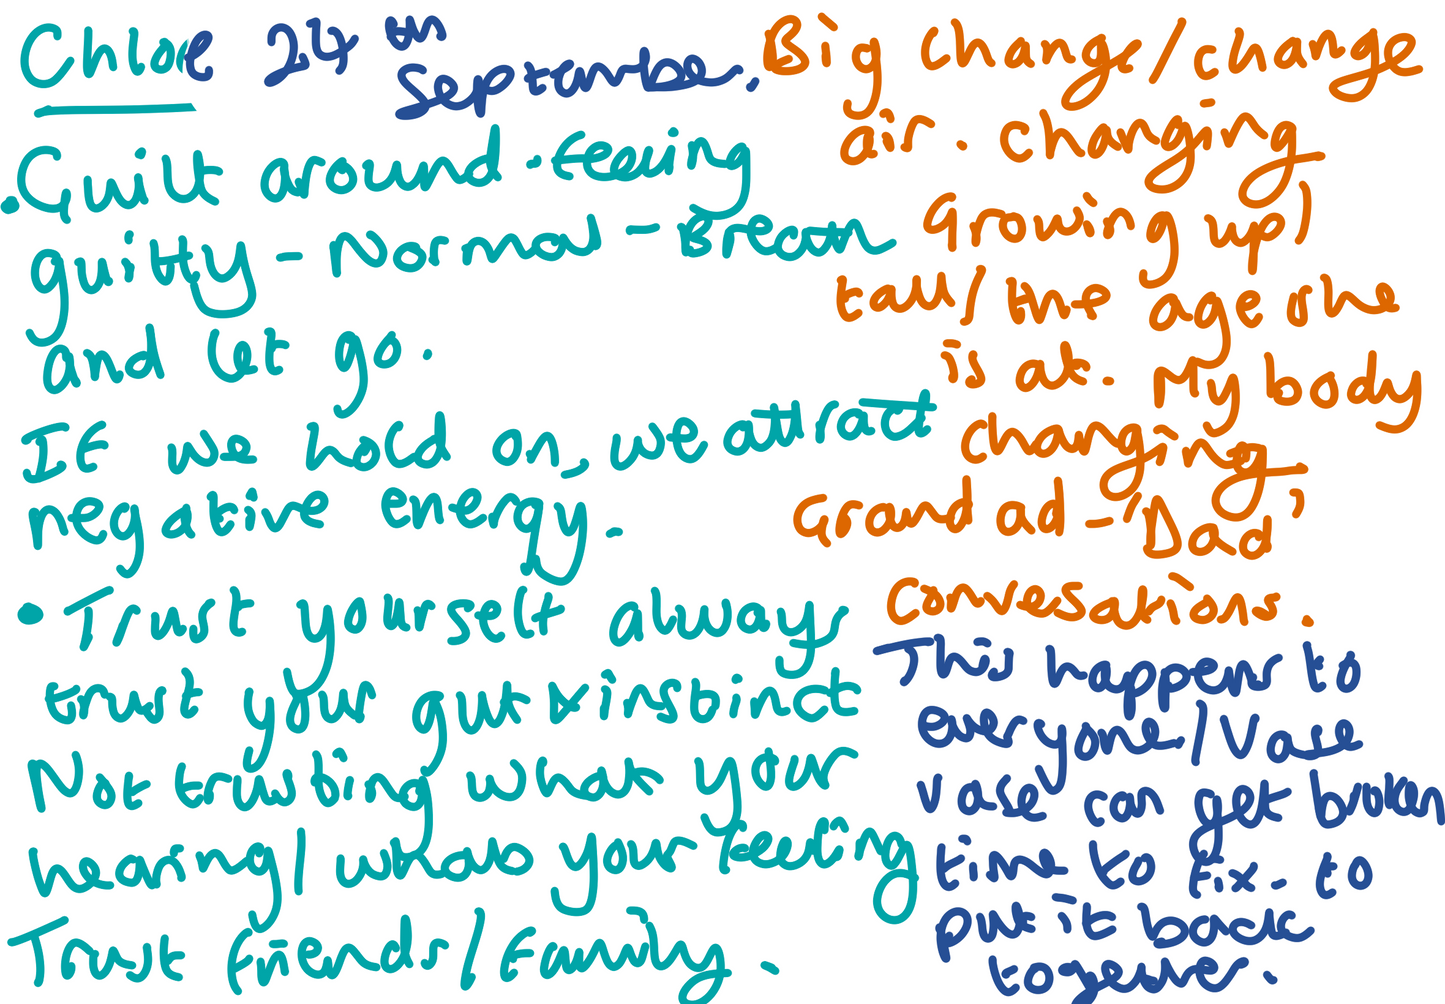 Chloe 24th September.
• Guilt around - feeling
guilty - Normal - Breath
and let go.
If we hold on, we attract
negative energy.
• Trust yourself always
trust your gut & instinct
Not trusting what your
hearing / whats your feeling
Trust friends / Family.
Big change / change
air. changing
Growing up /
tall / the age she
is at. My body
changing
Grand ad - 'Dad'
Convesations.
This happens to
everyone / Vase
vase can get broken
time to fix - to
put it back
together.